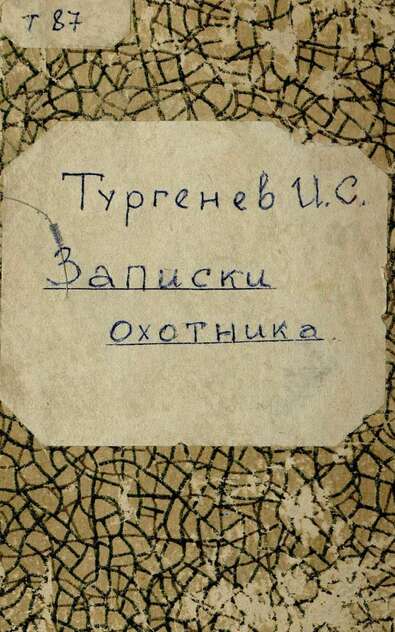 т 87
Тургенев И.С.
Записки
охотника